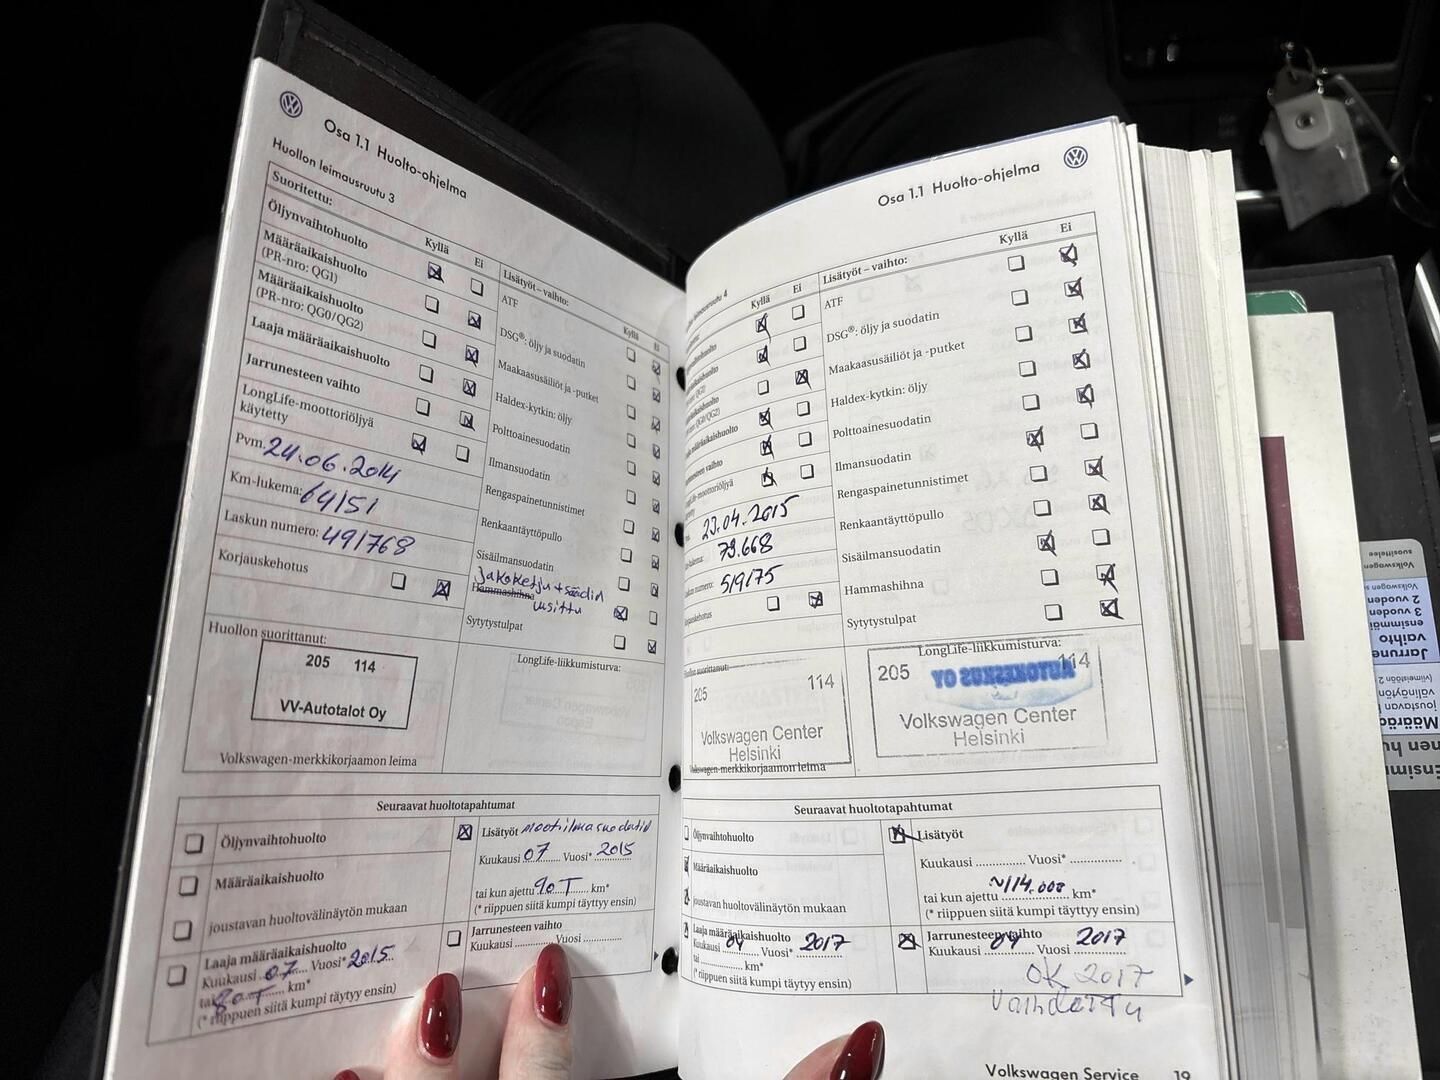 Osa 1.1 Huolto-ohjelma
Huollon leimausruutu 3
Suoritettu:
Kyllä
Ei
Öljynvaihtohuolto
Määräaikaishuolto
(PR-nro: QG1)
Määräaikaishuolto
(PR-nro: QG0/QG2)
Laaja määräaikaishuolto
Jarrunesteen vaihto
LongLife-moottoriöljyä
käytetty
Pvm. 24.06.2014
Km-lukema: 64151
Laskun numero: 491768
Korjauskehotus
Lisätyöt – vaihto:
Kyllä
Ei
ATF
DSG®: öljy ja suodatin
Maakaasusäiliöt ja -putket
Haldex-kytkin: öljy
Polttoainesuodatin
Ilmansuodatin
Rengaspainetunnistimet
Renkaantäyttöpullo
Sisäilmansuodatin
Jakoketju + säädin
Hammashihna uusittu
Sytytystulpat
Huollon suorittanut:
205 114
VV-Autotalot Oy
Volkswagen-merkkikorjaamon leima
LongLife-liikkumisturva:
Seuraavat huoltotapahtumat
Öljynvaihtohuolto
Määräaikaishuolto
joustavan huoltovälinäytön mukaan
Laaja määräaikaishuolto
Kuukausi 07 Vuosi* 2015
tai 80T km*
(* riippuen siitä kumpi täytyy ensin)
Lisätyöt
Kuukausi 07 Vuosi* 2015
tai kun ajettu 90T km*
(* riippuen siitä kumpi täytyy ensin)
Jarrunesteen vaihto
Kuukausi Vuosi
Osa 1.1 Huolto-ohjelma
Kyllä
Ei
23.04.2015
79.668
519175
Lisätyöt – vaihto:
Kyllä
Ei
ATF
DSG®: öljy ja suodatin
Maakaasusäiliöt ja -putket
Haldex-kytkin: öljy
Polttoainesuodatin
Ilmansuodatin
Rengaspainetunnistimet
Renkaantäyttöpullo
Sisäilmansuodatin
Hammashihna
Sytytystulpat
Huollon suorittanut:
205 114
Volkswagen Center
Helsinki
Volkswagen-merkkikorjaamon leima
LongLife-liikkumisturva:
205 114
AUTOKESKUS OY
Volkswagen Center
Helsinki
Seuraavat huoltotapahtumat
Öljynvaihtohuolto
Määräaikaishuolto
joustavan huoltovälinäytön mukaan
Laaja määräaikaishuolto
Kuukausi 04 Vuosi* 2017
tai km*
(* riippuen siitä kumpi täytyy ensin)
Lisätyöt
Kuukausi Vuosi*
tai kun ajettu ~114.000 km*
(* riippuen siitä kumpi täytyy ensin)
Jarrunesteen vaihto
Kuukausi 04 Vuosi 2017
OK 2017
Vaihdettu
Volkswagen Service 19